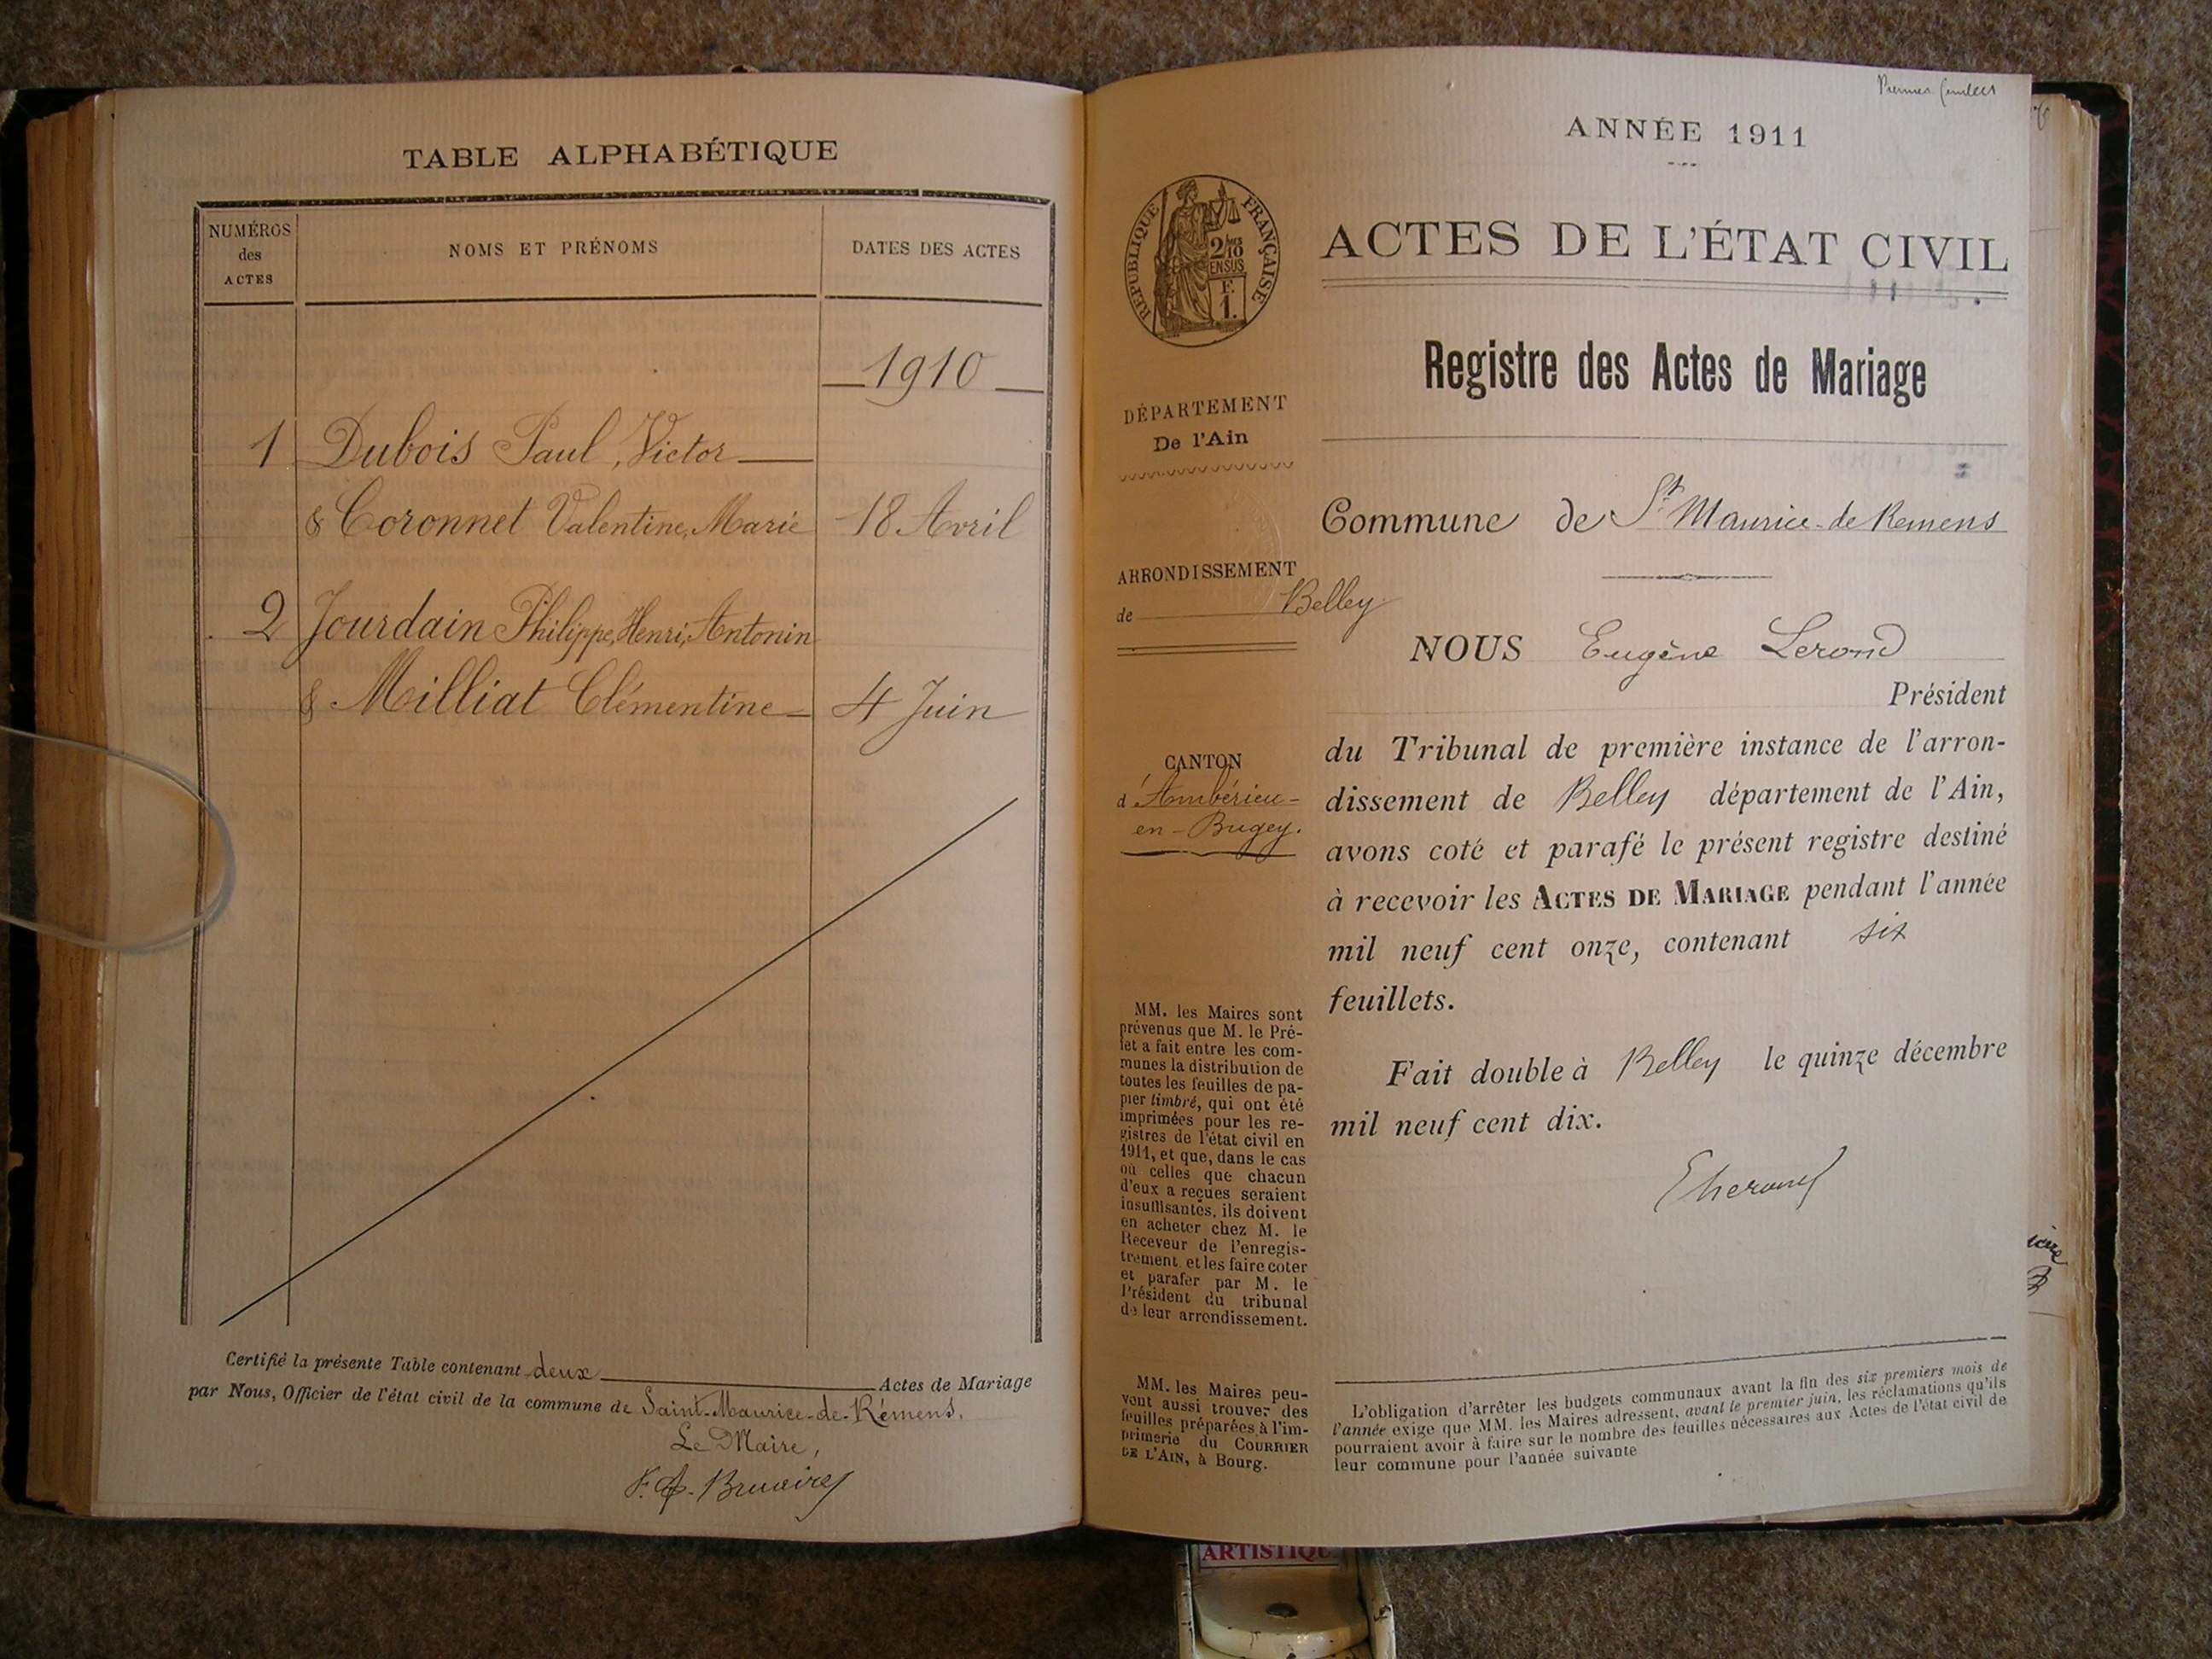 TABLE ALPHABÉTIQUE
NUMÉROS
des
ACTES
NOMS ET PRÉNOMS
DATES DES ACTES
1910
1 Dubois Paul, Victor
& Coronnet Valentine, Marie 18 Avril
2 Jourdain Philippe, Henri, Antonin
& Milliat Clémentine 4 Juin
Certifié la présente Table contenant deux Actes de Mariage
par Nous, Officier de l'état civil de la commune de Saint-Maurice-de-Rémens.
Le Maire,
Premier feuillet
ANNÉE 1911
RÉPUBLIQUE FRANÇAISE
2/10
EN SUS
F.
1.
ACTES DE L'ÉTAT CIVIL
Registre des Actes de Mariage
DÉPARTEMENT
De l'Ain
ARRONDISSEMENT
de Belley
CANTON
d'Ambérieu-
en-Bugey.
MM. les Maires sont
prévenus que M. le Pré-
fet a fait entre les com-
munes la distribution de
toutes les feuilles de pa-
pier timbré, qui ont été
imprimées pour les re-
gistres de l'état civil en
1911, et que, dans le cas
où celles que chacun
d'eux a reçues seraient
insuffisantes, ils doivent
en acheter chez M. le
Receveur de l'enregis-
trement et les faire coter
et parafer par M. le
Président du tribunal
de leur arrondissement.
MM. les Maires peu-
vent aussi trouver des
feuilles préparées à l'im-
primerie du COURRIER
DE L'AIN, à Bourg.
Commune de St Maurice-de Remens
NOUS Eugène Lerond
Président
du Tribunal de première instance de l'arron-
dissement de Belley département de l'Ain,
avons coté et parafé le présent registre destiné
à recevoir les ACTES DE MARIAGE pendant l'année
mil neuf cent onze, contenant six
feuillets.
Fait double à Belley le quinze décembre
mil neuf cent dix.
L'obligation d'arrêter les budgets communaux avant la fin des six premiers mois de
l'année exige que MM. les Maires adressent, avant le premier juin, les réclamations qu'ils
pourraient avoir à faire sur le nombre des feuilles nécessaires aux Actes de l'état civil de
leur commune pour l'année suivante
ARTISTIQU